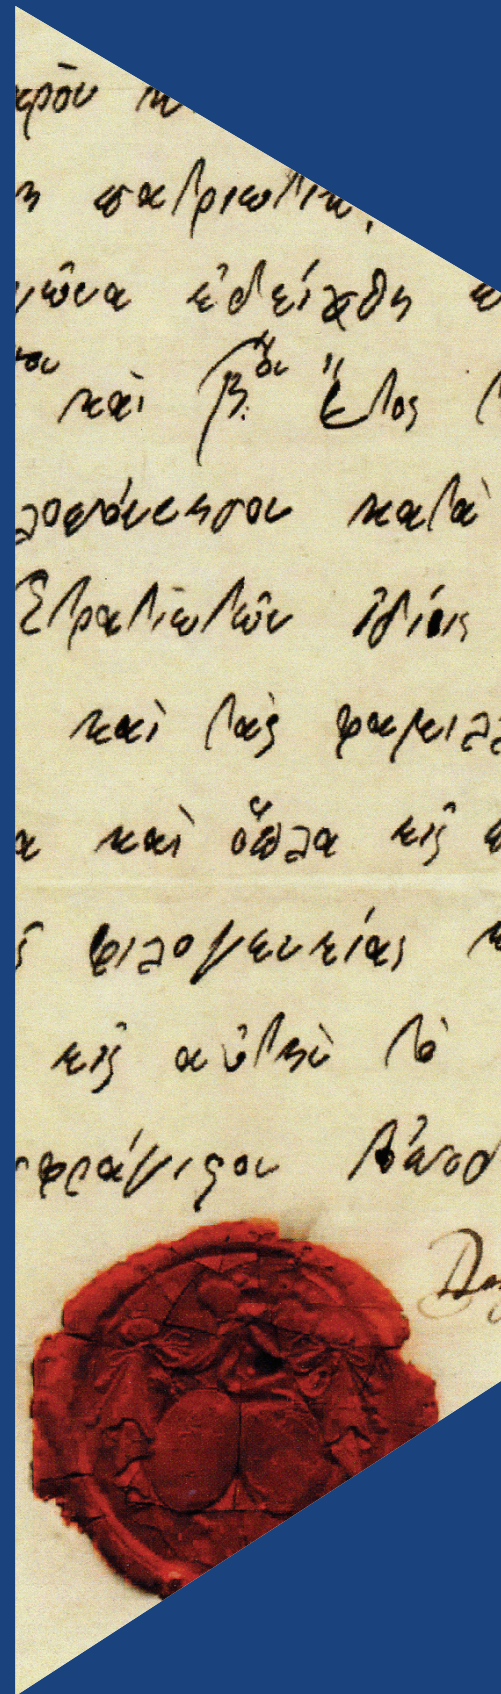 κρὸν
πατριωτικ
γῶνα ἐδείχθη
καὶ β:ον ἔτος
λοπόννησον κατὰ
Στρατιωτῶν ἰδίοις
καὶ τὰς φαμιλλ
α καὶ ὅπλα εἰς
ς φιλογενείας
εἰς αὐτὴν τὸ
σφράγιζον